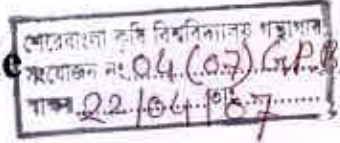 শেরেবাংলা কৃষি বিশ্ববিদ্যালয় গন্থাগার
সংযোজন নং 04 (07) GPB
22/04/07